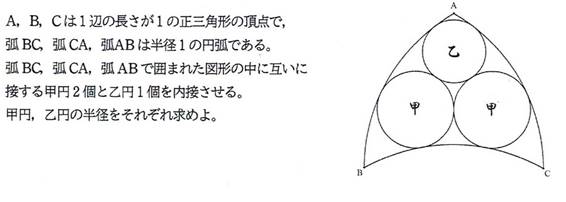 A，B，Cは1辺の長さが1の正三角形の頂点で，
弧BC，弧CA，弧ABは半径1の円弧である。
弧BC，弧CA，弧ABで囲まれた図形の中に互いに
接する甲円2個と乙円1個を内接させる。
甲円，乙円の半径をそれぞれ求めよ。
A
乙
甲 甲
B C